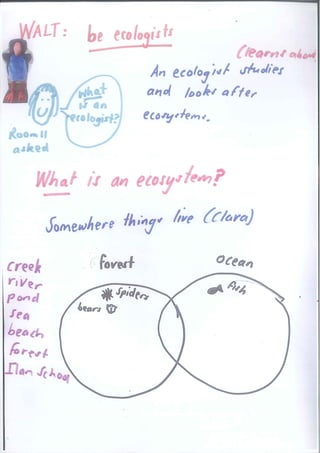 WALT: be ecologists
(learns about
An ecologist studies
and looks after
ecosystems.
What
is an
ecologist?
Room 11
asked
What is an ecosystem?
Somewhere things live (Clara)
creek
river
pond
sea
beach
forest
Ilam School
forest
Ocean
spiders
bears
fish